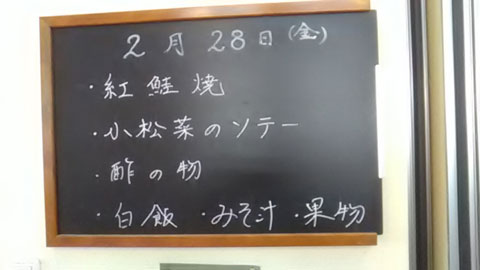 2月28日(金)
・紅鮭焼
・小松菜のソテー
・酢の物
・白飯 ・みそ汁 ・果物